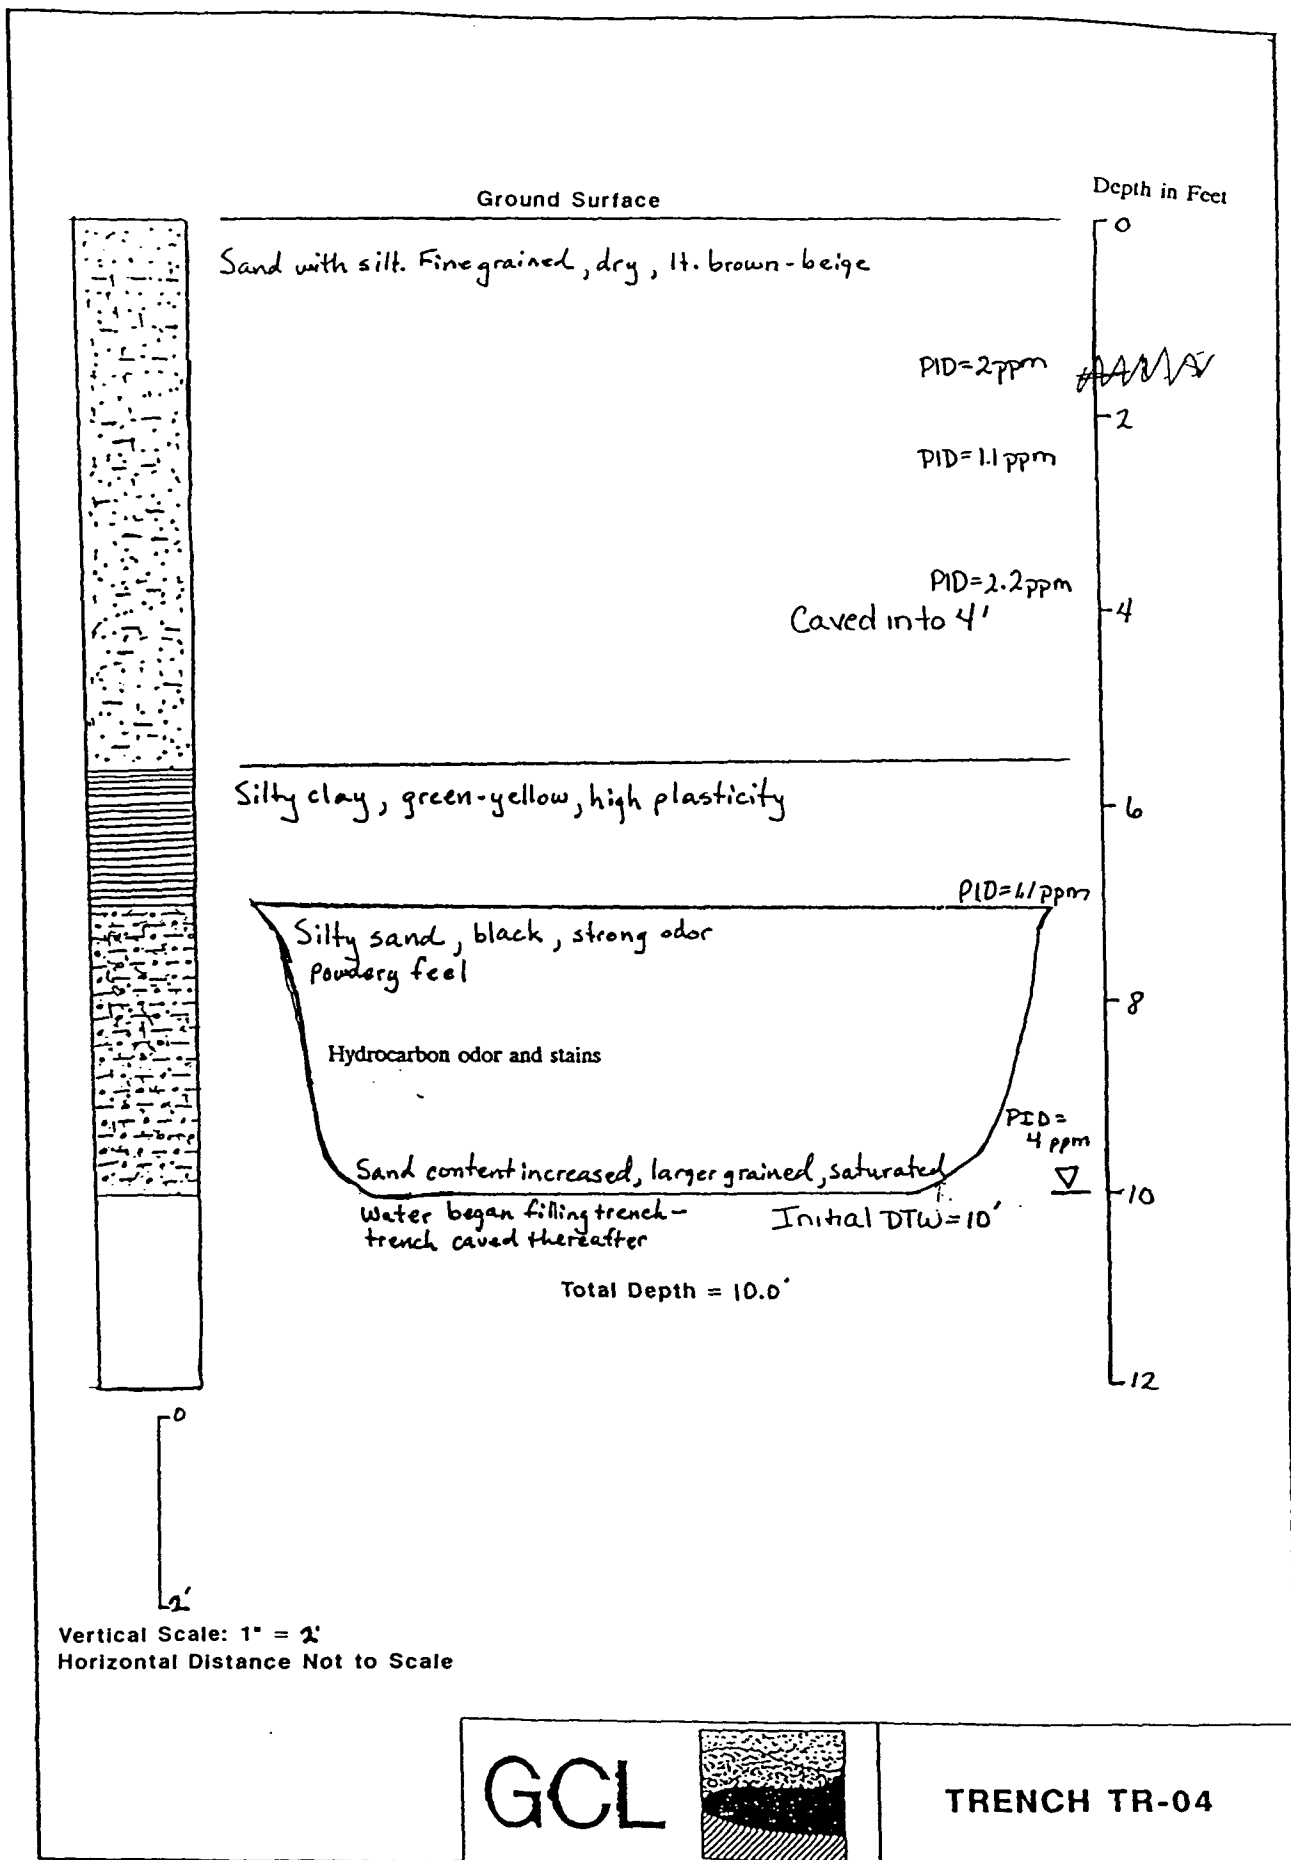 Ground Surface
Depth in Feet
0
Sand with silt. Fine grained, dry, lt. brown-beige
PID=2ppm
2
PID=1.1ppm
PID=2.2ppm
Caved in to 4'
4
Silty clay, green-yellow, high plasticity
6
PID= ppm
Silty sand, black, strong odor
Powdery feel
8
Hydrocarbon odor and stains
PID=
4 ppm
Sand content increased, larger grained, saturated
10
Water began filling trench-
trench caved thereafter
Initial DTW=10'
Total Depth = 10.0'
12
0
2'
Vertical Scale: 1" = 2'
Horizontal Distance Not to Scale
GCL
TRENCH TR-04